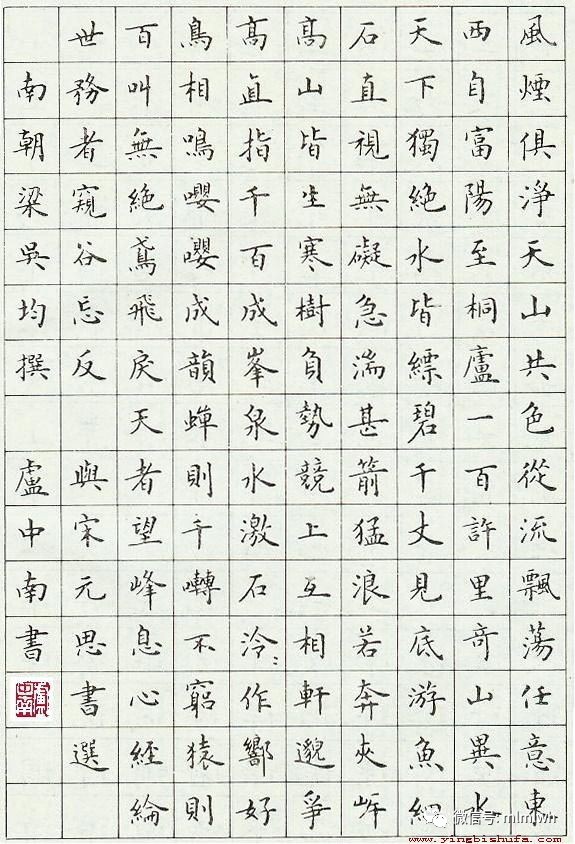 風煙俱淨天山共色從流飄蕩任意東
西自富陽至桐廬一百許里奇山異水
天下獨絕水皆縹碧千丈見底游魚細
石直視無礙急湍甚箭猛浪若奔夾岸
髙山皆生寒樹負勢競上互相軒邈爭
髙直指千百成峯泉水激石泠〻作響好
鳥相鳴嚶嚶成韻蟬則千囀不窮猿則
百叫無絕鳶飛戾天者望峰息心經綸
世務者窺谷忘反 與宋元思書選
南朝梁吳均撰 盧中南書
盧中南
微信号: mlmlwh
www.yingbishufa.com